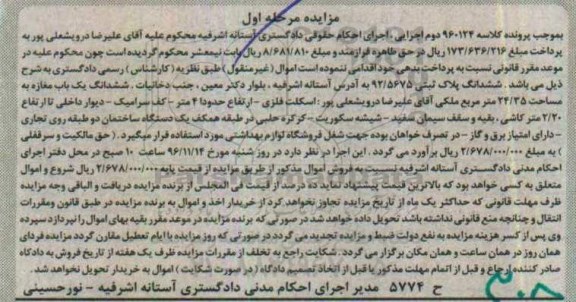 مزایده مرحله اول
بموجب پرونده کلاسه ۹۶۰۱۲۴ دوم اجرایی، اجرای احکام حقوقی دادگستری آستانه اشرفیه محکوم علیه آقای علیرضا درویشعلی پور به
پرداخت مبلغ ۱۷۳/۶۳۶/۲۱۶ ریال در حق طاهره فرازمند و مبلغ ۸/۶۸۱/۸۱۰ ریال بابت نیمعشر محکوم گردیده است چون محکوم علیه در
موعد مقرر قانونی نسبت به پرداخت بدهی خود اقدامی ننموده است اموال (غیر منقول) طبق نظریه (کارشناس) رسمی دادگستری به شرح
ذیل می باشد. ششدانگ پلاک ثبتی ۹۲/۵۶۷۵ به آدرس آستانه اشرفیه، بلوار دکتر معین، جنب دخانیات. ششدانگ یک باب مغازه به
مساحت ۲۴/۳۵ متر مربع ملکی آقای علیرضا درویشعلی پور: اسکلت فلزی - ارتفاع حدودا ۴ متر - کف سرامیک - دیوار داخلی تا ارتفاع
۲/۲۰ متر کاشی، بقیه و سقف سیمان سفید - شیشه سکوریت - کرکره حلبی در طبقه همکف یک دستگاه ساختمان دو طبقه روی تجاری
- دارای امتیاز برق و گاز - در تصرف خواهان بوده جهت شغل فروشگاه لوازم بهداشتی مورد استفاده قرار میگیرد. (حق مالکیت و سرقفلی
) به مبلغ ۲/۶۷۸/۰۰۰/۰۰۰ ریال برآورد می گردد. این اجرا در نظر دارد در روز شنبه مورخ ۹۶/۱۱/۱۴ ساعت ۱۰ صبح در محل دفتر اجرای
احکام مدنی دادگستری آستانه اشرفیه نسبت به فروش اموال مذکور از طریق مزایده از قیمت پایه ۲/۶۷۸/۰۰۰/۰۰۰ ریال شروع و اموال
متعلق به کسی خواهد بود که بالاترین قیمت پیشنهاد نماید ده درصد از قیمت فی المجلس از برنده مزایده دریافت و الباقی وجه مزایده
ظرف مهلت قانونی که حداکثر یک ماه از تاریخ مزایده تجاوز نخواهد کرد از خریدار اخذ و اموال به برنده مزایده در طبق قانون ومقررات
انتقال و چنانچه منع قانونی نداشته باشد تحویل داده خواهد شد در صورتی که برنده مزایده در موعد مقرر بقیه بهای اموال را نپردازد سپرده
وی پس از کسر هزینه مزایده به نفع دولت ضبط و مزایده تجدید می گردد در صورتی که روز مزایده با ایام تعطیل مقارن گردد مزایده فردای
همان روز در همان ساعت و همان مکان برگزار می گردد. شکایت راجع به تخلف از مقررات مزایده ظرف یک هفته از تاریخ فروش به دادگاه
صادر کننده ارجاع و قبل از اتمام مهلت مذکور یا قبل از اتخاذ تصمیم دادگاه (در صورت شکایت) اموال به خریدار تحویل نخواهد شد.
ح ۵۷۷۴ مدیر اجرای احکام مدنی دادگستری آستانه اشرفیه - نورحسینی